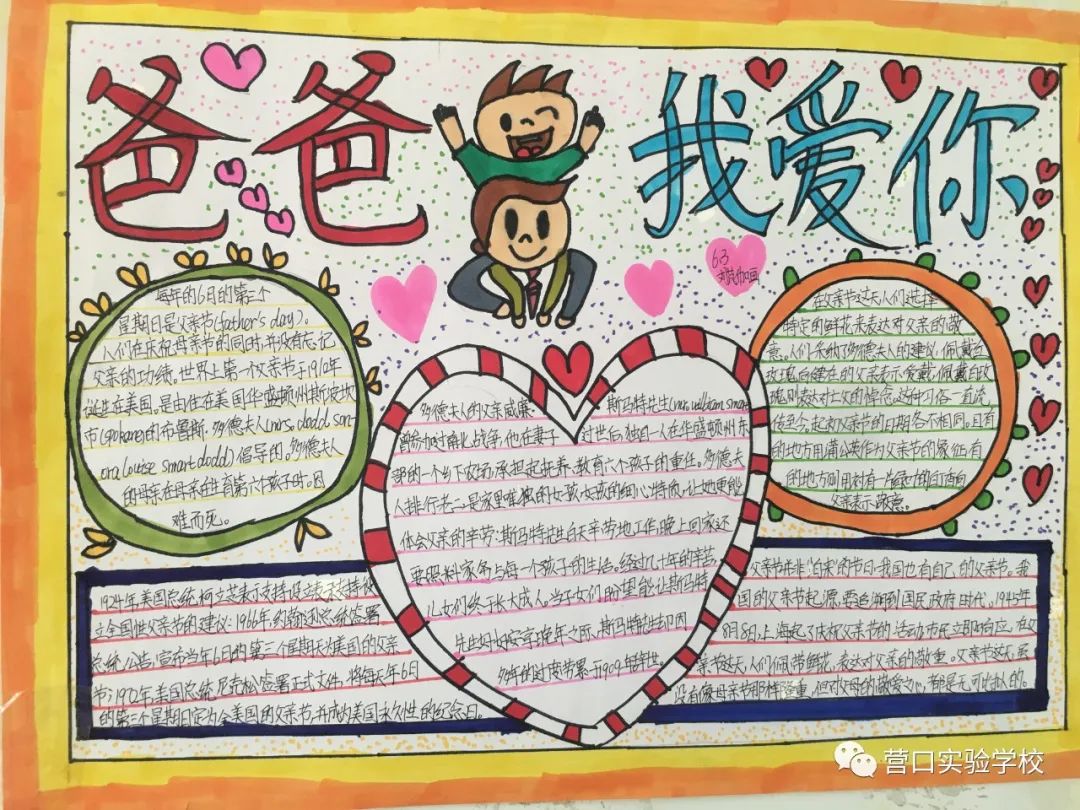 爸爸
我爱你
6.3
每年的6月的第三个
星期日是父亲节(father's day)。
人们在庆祝母亲节的同时,并没有忘记
父亲的功绩。世界上第一个父亲节于1910年
诞生在美国,是由住在美国华盛顿州斯波坎
市(Spokane)的布鲁斯·多德夫人(mrs.dodd son-
ora louise smart dodd)倡导的。多德夫人
的母亲在母亲生育第六个孩子时,因
难而死。
多德夫人的父亲威廉·斯马特先生(mrs. william smart
曾参加过南北战争,他在妻子过世后独自一人在华盛顿州东
部的一个乡下农场承担起抚养、教育六个孩子的重任。多德夫
人排行老二是家里唯独的女孩,女孩的细心特质,让她更能
体会父亲的辛劳:斯马特先生白天辛劳地工作,晚上回家还
要照料家务与每一个孩子的生活。经过几十年的辛苦
儿女们终于长大成人。当子女们盼望能让斯马特
先生好好安享晚年之际,斯马特先生却因
多年的过度劳累于1909年辞世。
在父亲节这天人们选择
特定的鲜花来表达对父亲的敬
意。人们采纳了多德夫人的建议,佩戴红
玫瑰向健在的父亲表示爱戴,佩戴白玫
瑰则表达对亡父的悼念。这种习俗一直流
传至今。起初父亲节的日期各不相同。且有
的地方用蒲公英作为父亲节的象征,有
的地方则用衬有一片绿叶的白丁香向
父亲表示敬意。
1924年美国总统柯立芝表示支持设立表示支持设
立全国性父亲节的建议;1966年约翰逊总统签署
总统公告,宣布当年6月的第三个星期天为美国的父亲
节;1972年美国总统尼克松签署正式文件,将每年6月
的第三个星期日定为全美国的父亲节,并成为美国永久性的纪念日。
父亲节并非"舶来"的节日,我国也有自己的父亲节。我
国的父亲节起源,要追溯到国民政府时代。1945年
8月8日,上海起了庆祝父亲节的活动,市民立即响应,在父
亲节这天,人们佩带鲜花,表达对父亲的敬重。父亲节这天,虽
没有像母亲节那样隆重,但对父母的敬爱之心,都是无可比拟的。
营口实验学校